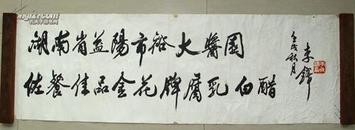 湖南省益陽市裕大醬園
佐餐佳品金花牌腐乳白醋
壬戌秋月
李鐸